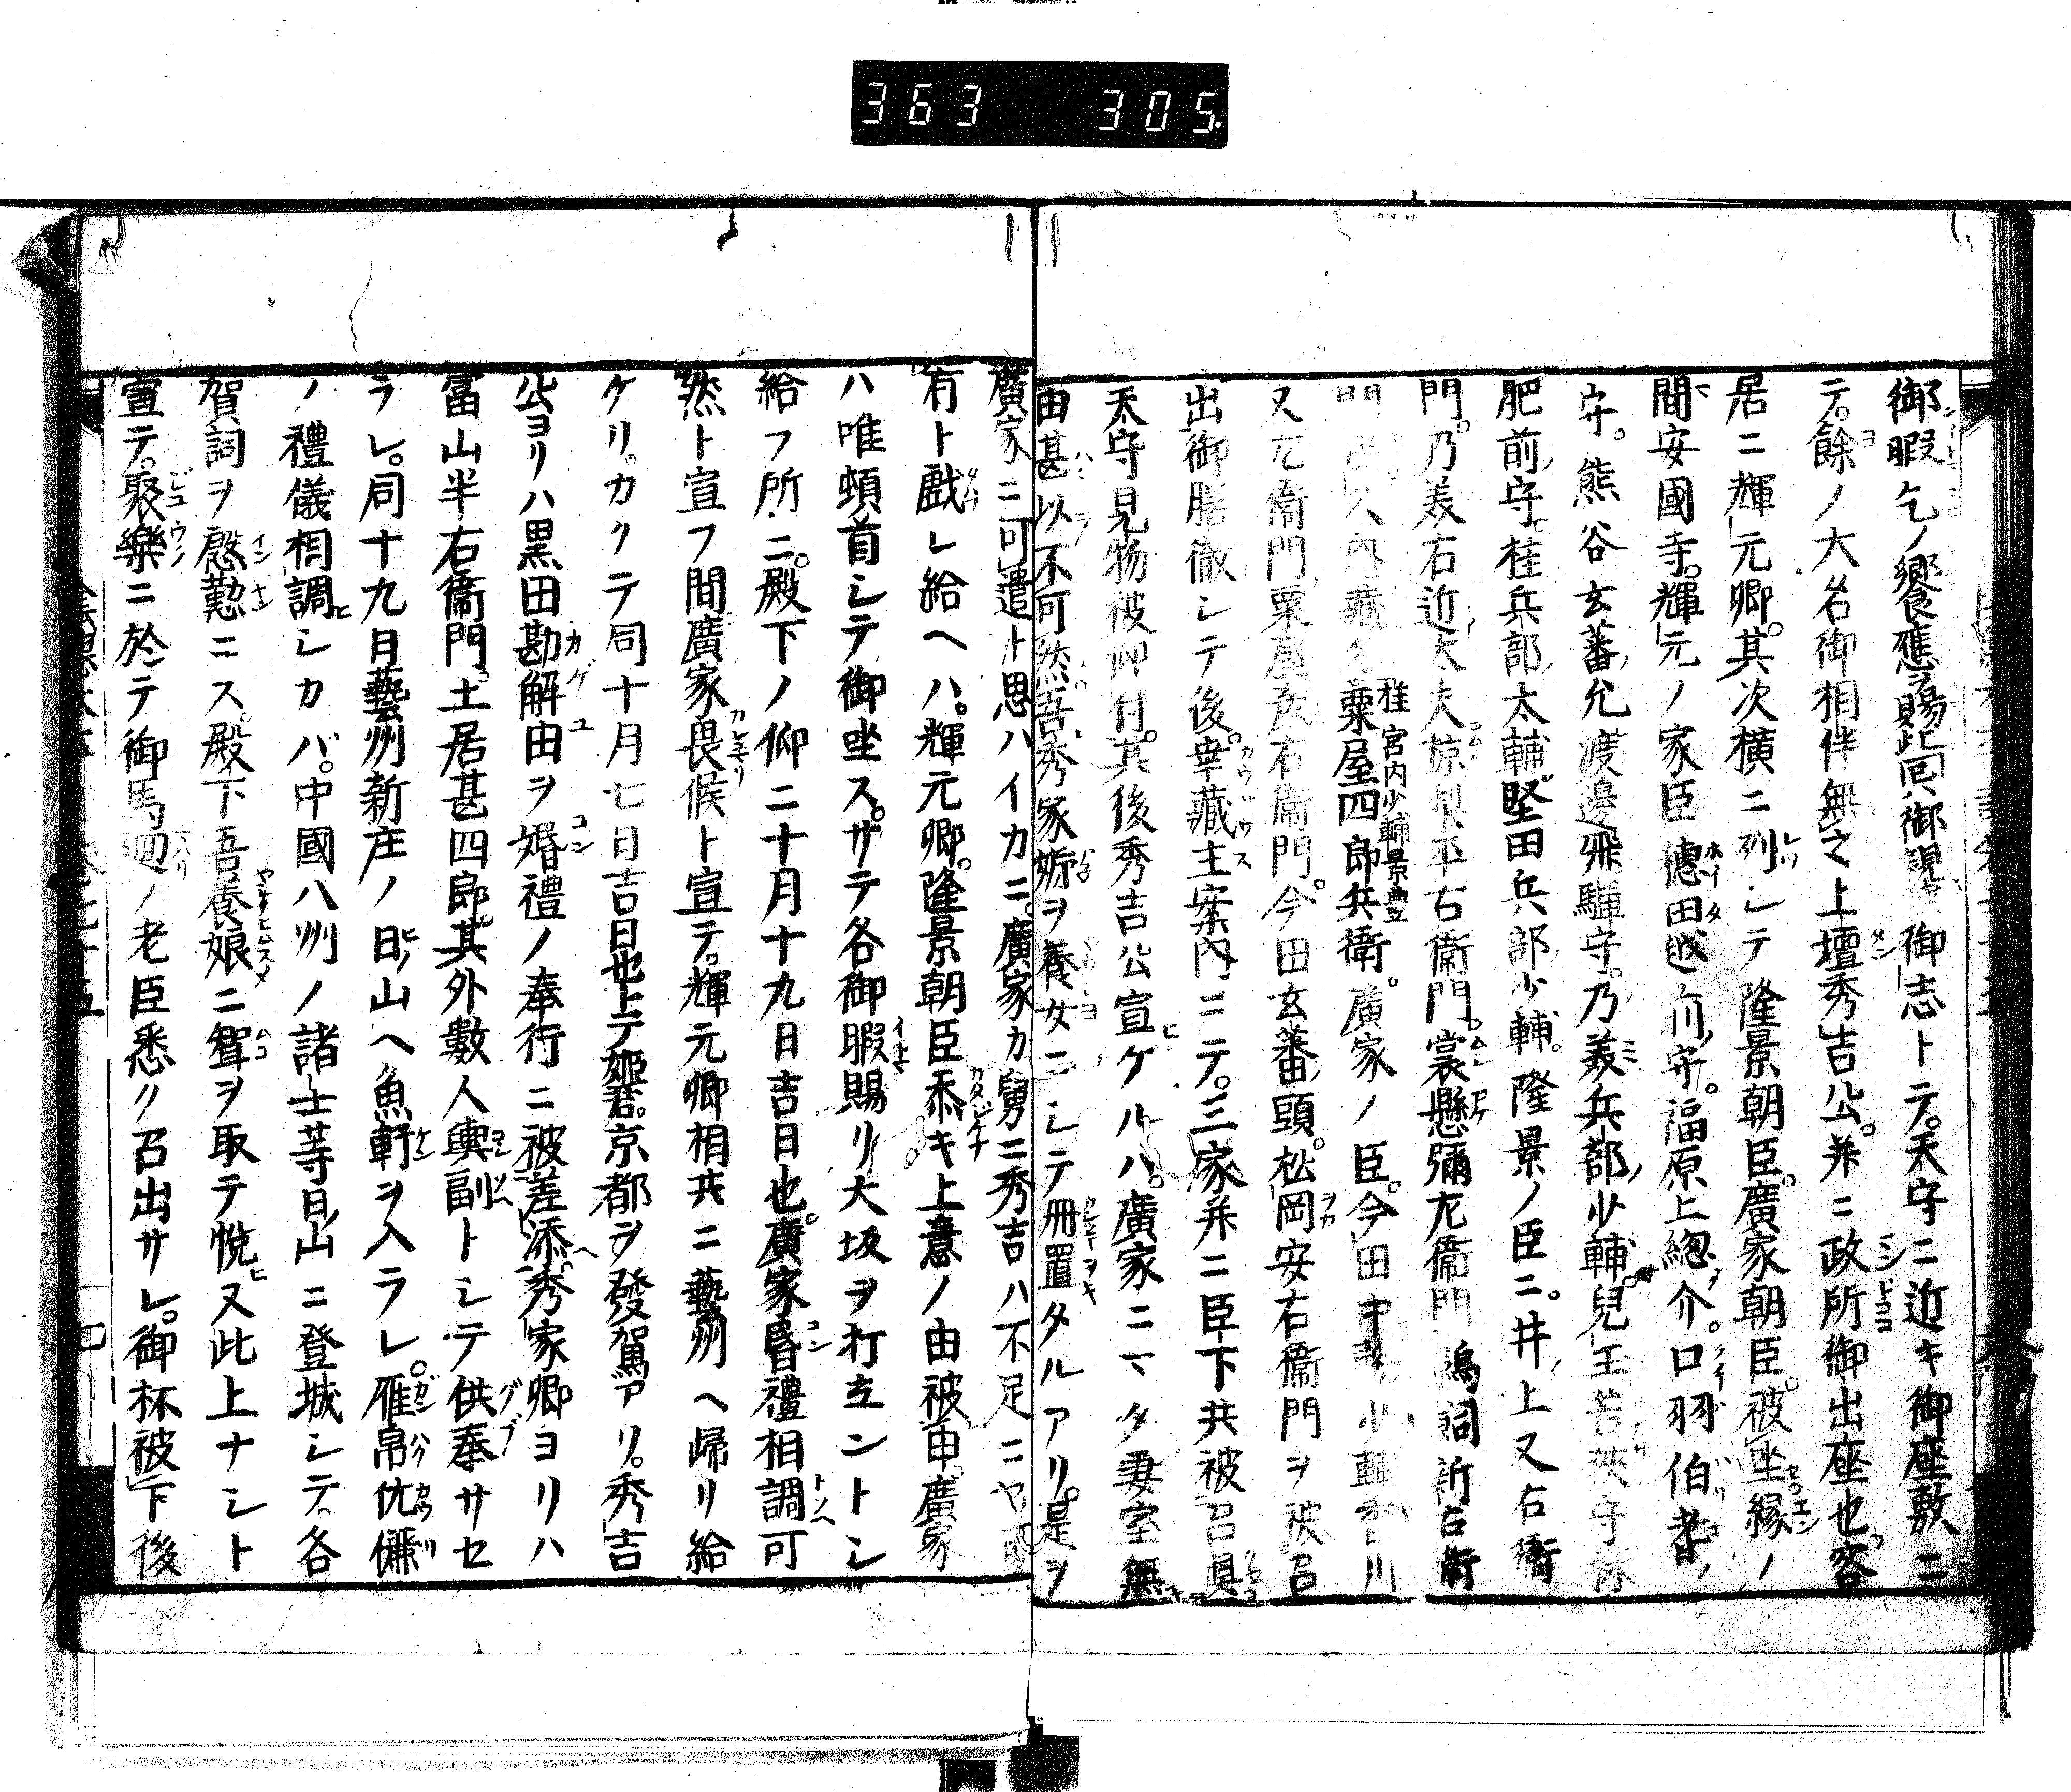 363 305
御暇乞ノ饗應ヲ賜此回ハ御親キ御志トテ。天守ニ近キ御座敷ニ
テ。餘ノ大名御相伴無之上壇秀吉公。并ニ政所御出座也客
居ニ輝元卿。其次横ニ列シテ隆景朝臣。廣家朝臣。被坐縁ノ
間安國寺。輝元ノ家臣穗田越前守。福原上總介。口羽伯耆ノ
守。熊谷玄蕃允渡邊飛驒守。乃美兵部少輔。兒玉若狭守
肥前守。桂兵部太輔堅田兵部少輔。隆景ノ臣ニ。井上又右衛
門。乃美右近大夫椋梨平右衛門。裳懸彌左衞門鵜飼新右衛
門 内藏允桂宮内少輔景豊粟屋四郎兵衛。廣家ノ臣。今田中務少輔
又左衞門粟屋彦右衞門。今田玄蕃頭。松岡安右衞門ヲ被召
出御膳徹シテ後。幸藏主案内ニテ。三家并ニ臣下共被召具
天守見物被仰付。其後秀吉公宣ケルハ。廣家ニマタ妻室無
由甚以不可然吾秀家姉ヲ養女ニシテ冊置タルアリ。是ヲ
廣家ニ可遣ト思ハイカニ。廣家カ舅ニ秀吉ハ不足ニヤ可
有ト戯レ給ヘハ。輝元卿。隆景朝臣忝キ上意ノ由被申。廣家
ハ唯頓首シテ御坐ス。サテ各御暇賜リ大坂ヲ打立ントシ
給フ所ニ。殿下ノ仰ニ十月十九日吉日也。廣家昏禮相調可
然ト宣フ間廣家畏候ト宣テ。輝元卿相共ニ藝州ヘ歸リ給
ケリ。カクテ同十月七日吉日也上テ姫君。京都ヲ發駕アリ。秀吉
公ヨリハ黒田勘解由ヲ婚禮ノ奉行ニ被差添。秀家卿ヨリハ
富山半右衞門。土居甚四郎其外數人輿副トシテ供奉サセ
ラレ。同十九日藝州新庄ノ日ノ山ヘ魚軒ヲ入ラレ。雁帛伉儷
ノ禮儀相調シカバ。中國八州ノ諸士等日山ニ登城シテ。各
賀詞ヲ慇懃ニス。殿下吾養娘ニ聟ヲ取テ悦又此上ナシト
宣テ。聚樂ニ於テ御馬廻ノ老臣悉ク召出サレ。御杯被下後